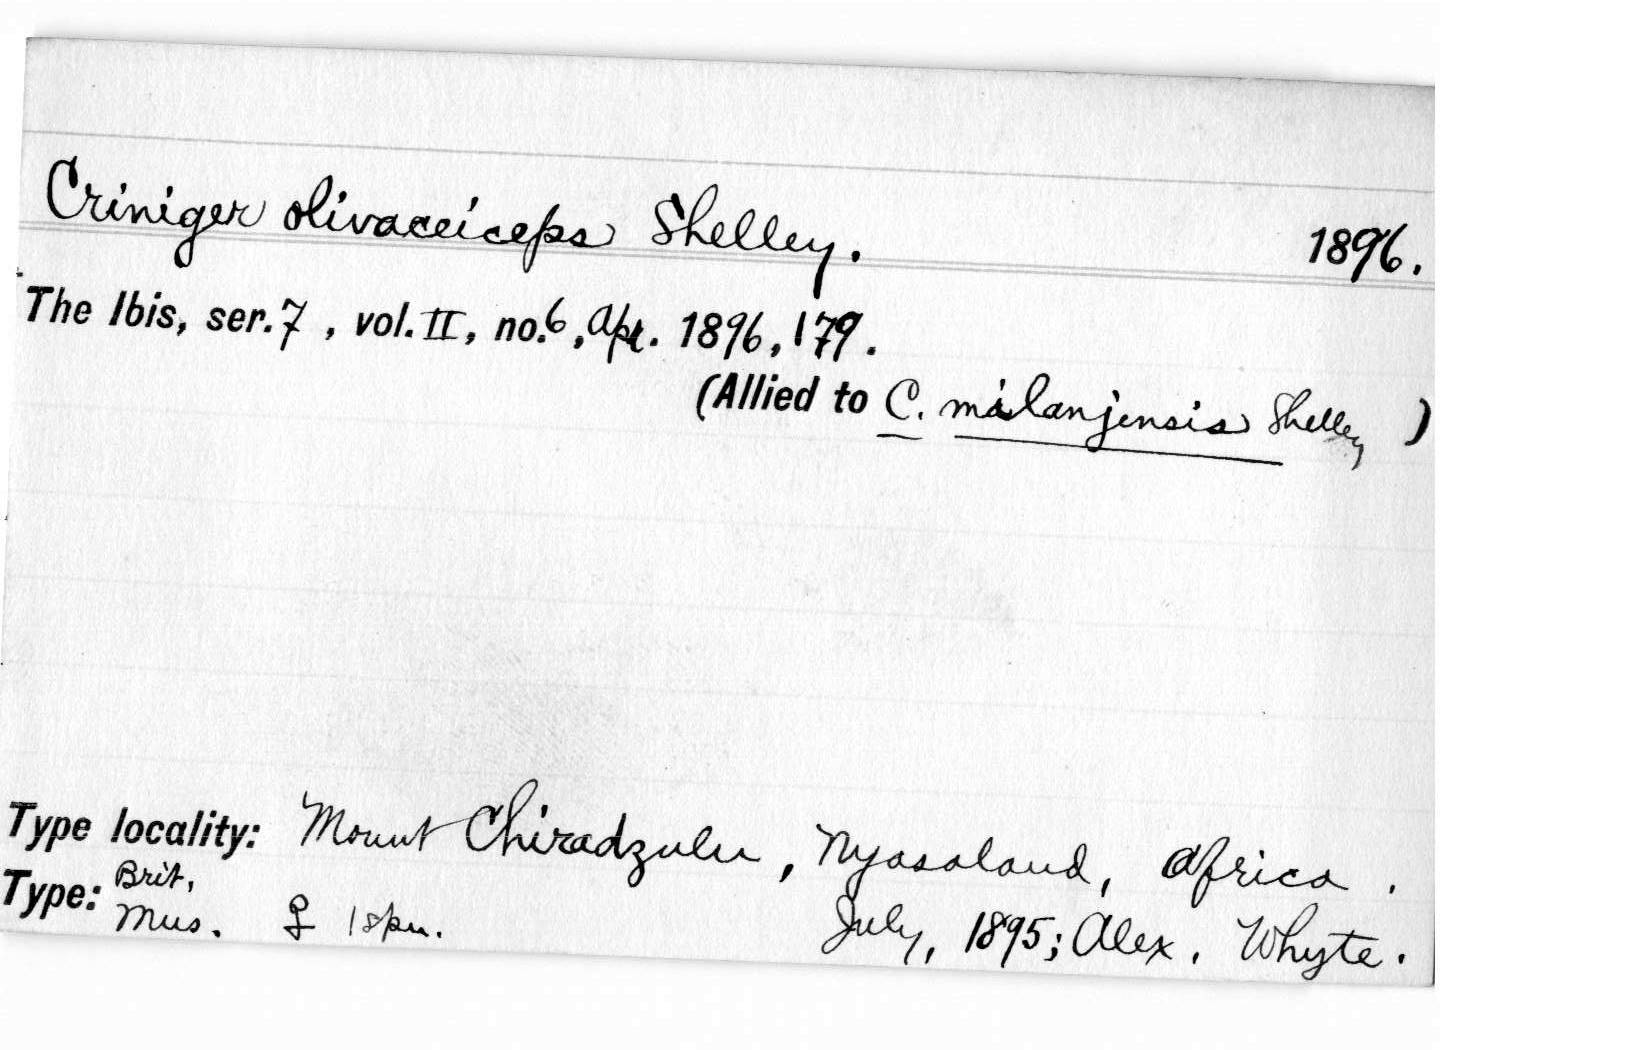 Criniger olivaceiceps Shelley. 1896.
The Ibis, ser. 7, vol. II, no. 6, Apr. 1896, 179.
(Allied to C. milanjensis Shelley)
Type locality: Mount Chiradzulu, Nyasaland, Africa.
Type: Brit. Mus. ♀ 1 spm. July, 1895; Alex. Whyte.